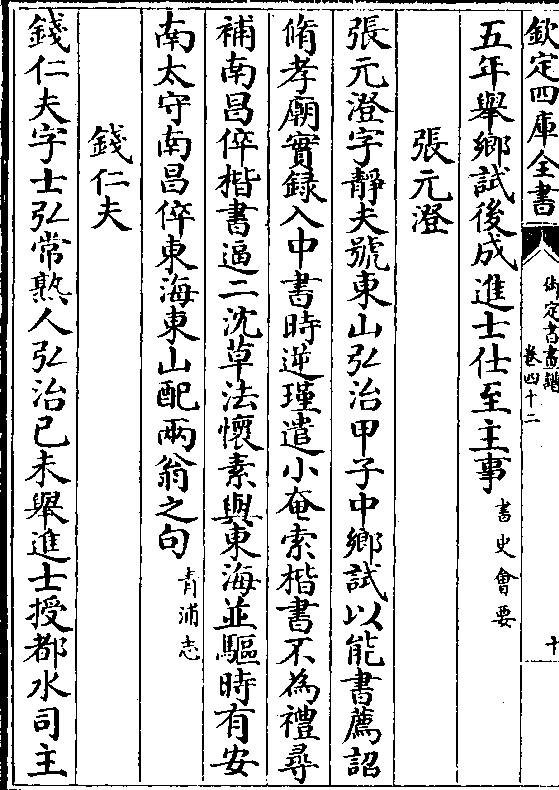 欽定四庫全書
御定書畫譜
卷四十二
十
五年舉鄉試後成進士仕至主事 書史會要
張元澄
張元澄字靜夫號東山弘治甲子中鄉試以能書薦詔
脩孝廟實録入中書時逆瑾遣小奄索楷書不為禮尋
補南昌倅楷書逼二沈草法懷素與東海並驅時有安
南太守南昌倅東海東山配兩翁之句 青浦志
錢仁夫
錢仁夫字士弘常熟人弘治己未舉進士授都水司主